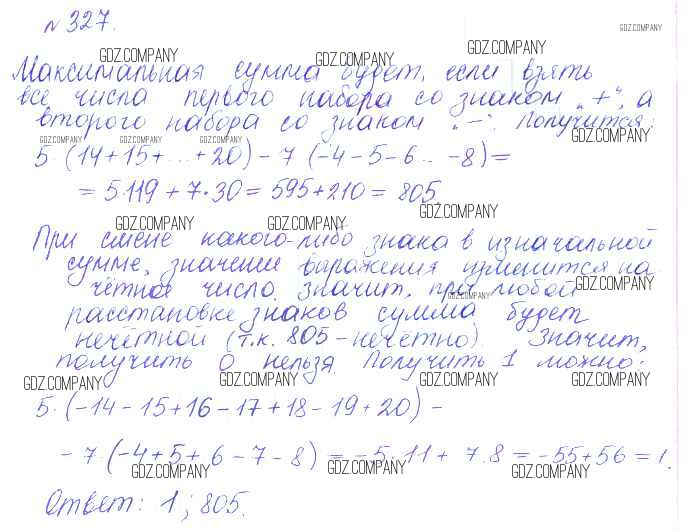 № 327.
GDZ.COMPANY
GDZ.COMPANY GDZ.COMPANY GDZ.COMPANY
Максимальная сумма будет, если взять
все числа первого набора со знаком „+“, а
второго набора со знаком „–“. Получится:
GDZ.COMPANY
GDZ.COMPANY GDZ.COMPANY GDZ.COMPANY
5·(14+15+...+20) – 7·(-4-5-6...-8)=
= 5·119 + 7·30 = 595+210 = 805
GDZ.COMPANY
GDZ.COMPANY GDZ.COMPANY
При смене какого-либо знака в изначальной
сумме, значение выражения изменится на
чётное число. Значит, при любой
GDZ.COMPANY GDZ.COMPANY
расстановке знаков сумма будет
нечётной (т.к. 805 – нечётно). Значит,
получить 0 нельзя. Получить 1 можно:
GDZ.COMPANY GDZ.COMPANY GDZ.COMPANY GDZ.COMPANY
5·(-14-15+16-17+18-19+20) –
– 7·(-4+5+6-7-8) = -5·11 + 7·8 = -55+56 = 1.
GDZ.COMPANY GDZ.COMPANY GDZ.COMPANY
Ответ: 1; 805.